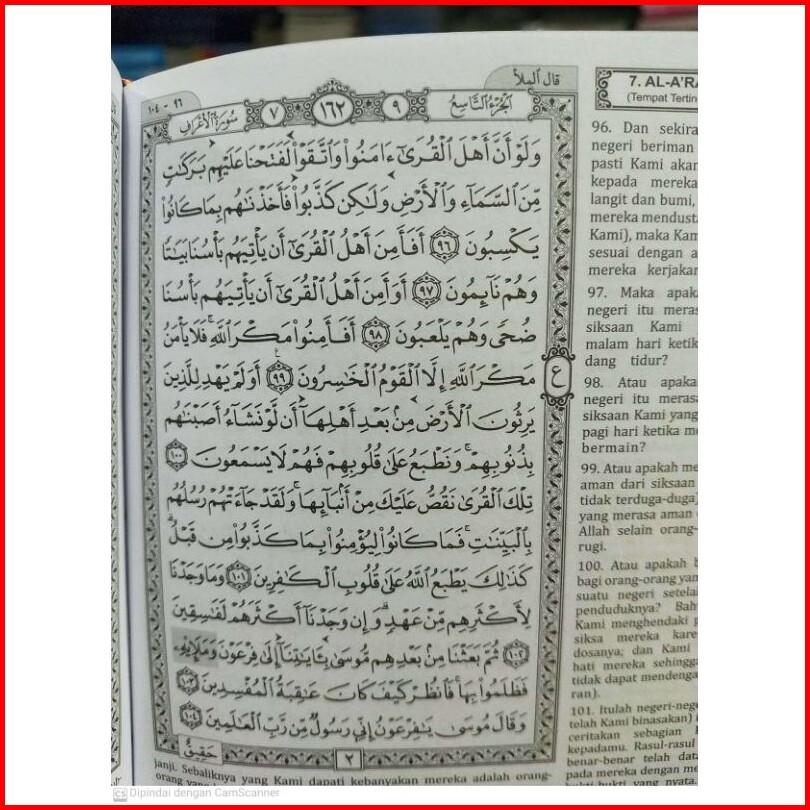 قال الملأ
٩٦ - ١٠٤
الجزء التاسع
٩
١٦٢
٧
سورة الأعراف
وَلَوْ أَنَّ أَهْلَ الْقُرَىٰٓ ءَامَنُوا۟ وَاتَّقَوْا۟ لَفَتَحْنَا عَلَيْهِم بَرَكَٰتٍ
مِّنَ السَّمَآءِ وَالْأَرْضِ وَلَٰكِن كَذَّبُوا۟ فَأَخَذْنَٰهُم بِمَا كَانُوا۟
يَكْسِبُونَ ٩٦ أَفَأَمِنَ أَهْلُ الْقُرَىٰٓ أَن يَأْتِيَهُم بَأْسُنَا بَيَٰتًا
وَهُمْ نَآئِمُونَ ٩٧ أَوَأَمِنَ أَهْلُ الْقُرَىٰٓ أَن يَأْتِيَهُم بَأْسُنَا
ضُحًى وَهُمْ يَلْعَبُونَ ٩٨ أَفَأَمِنُوا۟ مَكْرَ اللَّهِ ۚ فَلَا يَأْمَنُ
مَكْرَ اللَّهِ إِلَّا الْقَوْمُ الْخَٰسِرُونَ ٩٩ أَوَلَمْ يَهْدِ لِلَّذِينَ
يَرِثُونَ الْأَرْضَ مِنۢ بَعْدِ أَهْلِهَآ أَن لَّوْ نَشَآءُ أَصَبْنَٰهُم
بِذُنُوبِهِمْ ۚ وَنَطْبَعُ عَلَىٰ قُلُوبِهِمْ فَهُمْ لَا يَسْمَعُونَ ١٠٠
تِلْكَ الْقُرَىٰ نَقُصُّ عَلَيْكَ مِنْ أَنۢبَآئِهَا ۚ وَلَقَدْ جَآءَتْهُمْ رُسُلُهُم
بِالْبَيِّنَٰتِ فَمَا كَانُوا۟ لِيُؤْمِنُوا۟ بِمَا كَذَّبُوا۟ مِن قَبْلُ ۚ
كَذَٰلِكَ يَطْبَعُ اللَّهُ عَلَىٰ قُلُوبِ الْكَٰفِرِينَ ١٠١ وَمَا وَجَدْنَا
لِأَكْثَرِهِم مِّنْ عَهْدٍ ۖ وَإِن وَجَدْنَآ أَكْثَرَهُمْ لَفَٰسِقِينَ
١٠٢ ثُمَّ بَعَثْنَا مِنۢ بَعْدِهِم مُّوسَىٰ بِـَٔايَٰتِنَآ إِلَىٰ فِرْعَوْنَ وَمَلَإِي۟هِۦ
فَظَلَمُوا۟ بِهَا ۖ فَانظُرْ كَيْفَ كَانَ عَٰقِبَةُ الْمُفْسِدِينَ ١٠٣
وَقَالَ مُوسَىٰ يَٰفِرْعَوْنُ إِنِّى رَسُولٌ مِّن رَّبِّ الْعَٰلَمِينَ ١٠٤
ع
٢
حَقِيقٌ
janji. Sebaliknya yang Kami dapati kebanyakan mereka adalah orang-
7. AL-A'RA
(Tempat Tertin
96. Dan sekira
negeri beriman
pasti Kami akan
kepada mereka
langit dan bumi,
mereka mendusta
Kami), maka Kam
sesuai dengan a
mereka kerjakan
97. Maka apaka
negeri itu meras
siksaan Kami
malam hari ketik
dang tidur?
98. Atau apaka
negeri itu merasa
siksaan Kami yang
pagi hari ketika me
bermain?
99. Atau apakah me
aman dari siksaan
tidak terduga-duga)
yang merasa aman
Allah selain orang-
rugi.
100. Atau apakah b
bagi orang-orang yan
suatu negeri setela
penduduknya? Bah
Kami menghendaki p
siksa mereka kare
dosanya; dan Kami
hati mereka sehingga
tidak dapat mendenga
ran).
101. Itulah negeri-nege
telah Kami binasakan)
ceritakan sebagian
kepadamu. Rasul-rasul
benar-benar telah data
pada mereka dengan me
CS Dipindai dengan CamScanner